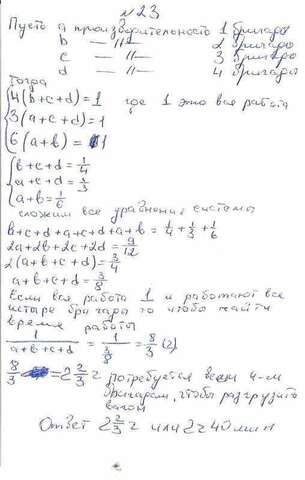 №23
Пусть a производительность 1 бригады
b — 〃 — 2 бригады
c — 〃 — 3 бригады
d — 〃 — 4 бригады
Тогда
{4(b+c+d)=1 где 1 это вся работа
{3(a+c+d)=1
{6(a+b)=1
{b+c+d=1/4
{a+c+d=1/3
{a+b=1/6
сложим все уравнения системы
b+c+d+a+c+d+a+b=1/4+1/3+1/6
2a+2b+2c+2d=9/12
2(a+b+c+d)=3/4
a+b+c+d=3/8
Если вся работа 1 и работают все
четыре бригады то чтобы найти
время работы
1/(a+b+c+d)=1/(3/8)=8/3 (ч)
8/3=2 2/3 ч потребуется всем 4-м
бригадам, чтобы разгрузить
вагон
Ответ 2 2/3 ч или 2ч 40 мин